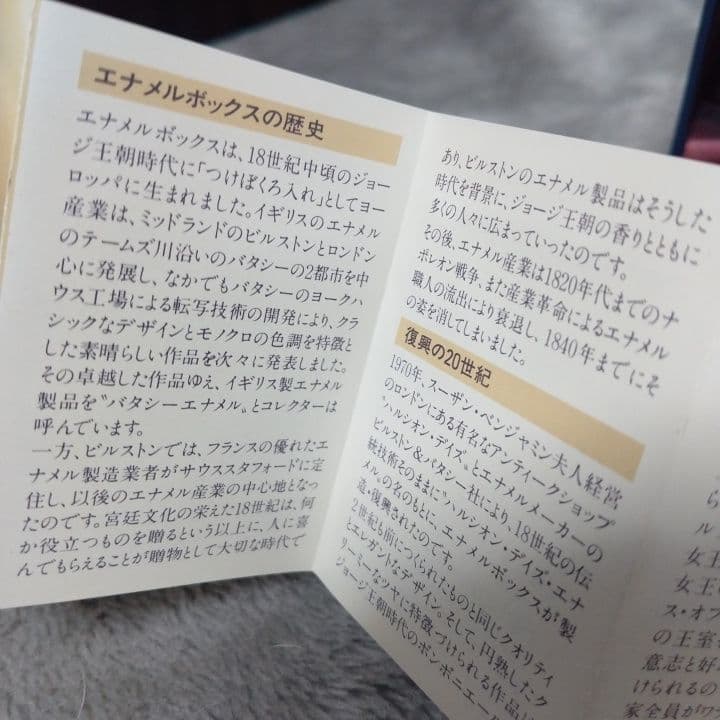 エナメルボックスの歴史
エナメルボックスは、18世紀中頃のジョー
ジ王朝時代に「つけぼくろ入れ」としてヨー
ロッパに生まれました。イギリスのエナメル
産業は、ミッドランドのビルストンとロンドン
のテームズ川沿いのバタシーの2都市を中
心に発展し、なかでもバタシーのヨークハ
ウス工場による転写技術の開発により、クラ
シックなデザインとモノクロの色調を特徴と
した素晴らしい作品を次々に発表しました。
その卓越した作品ゆえ、イギリス製エナメル
製品を〝バタシーエナメル〟とコレクターは
呼んでいます。
一方、ビルストンでは、フランスの優れたエ
ナメル製造業者がサウススタフォードに定
住し、以後のエナメル産業の中心地となっ
たのです。宮廷文化の栄えた18世紀は、何
か役立つものを贈るという以上に、人に喜
んでもらえることが贈物として大切な時代で
あり、ビルストンのエナメル製品はそうした
時代を背景に、ジョージ王朝の香りとともに
多くの人々に広まっていったのです。
その後、エナメル産業は1820年代までのナ
ポレオン戦争、また産業革命によるエナメル
職人の流出により衰退し、1840年までにそ
の姿を消してしまいました。
復興の20世紀
1970年、スーザン・ベンジャミン夫人経営
のロンドンにある有名なアンティークショップ
〝ハルシオン・デイズ〟とエナメルメーカーの
ビルストン&バタシー社により、18世紀の伝
統技術そのままに〝ハルシオン・デイズ・エナ
メル〟の名のもとに、エナメルボックスが製
造・復興されたのです。
2世紀も前につくられたものと同じクオリティ
とエレガントなデザイン。そして、円熟したク
リーミーなツヤに特徴づけられる作品は
ジョージ王朝時代のボンボニエー
ら
ル
女王
女王
ス・オフ
の王室
意志と好
けられるの
家全員が